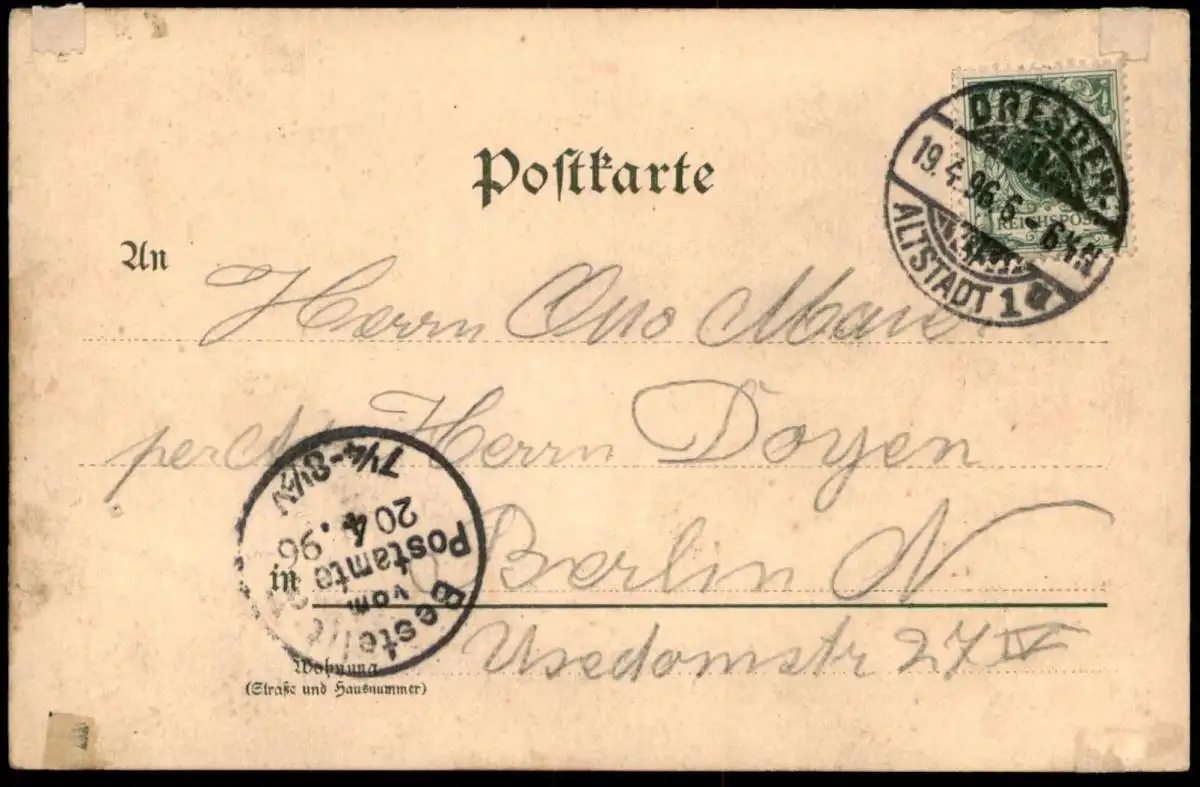 Postkarte
DRESDEN-
19.4.96.6-6½N
ALTSTADT 1 a
REICHSPOST
An
Herrn Otto Maier
per Ad. Herrn Doyen
in Berlin N
Usedomstr 27 IV
Wohnung
(Straße und Hausnummer)
Bestellt
vom
Postamte
20 4. 96
7¼-8½N